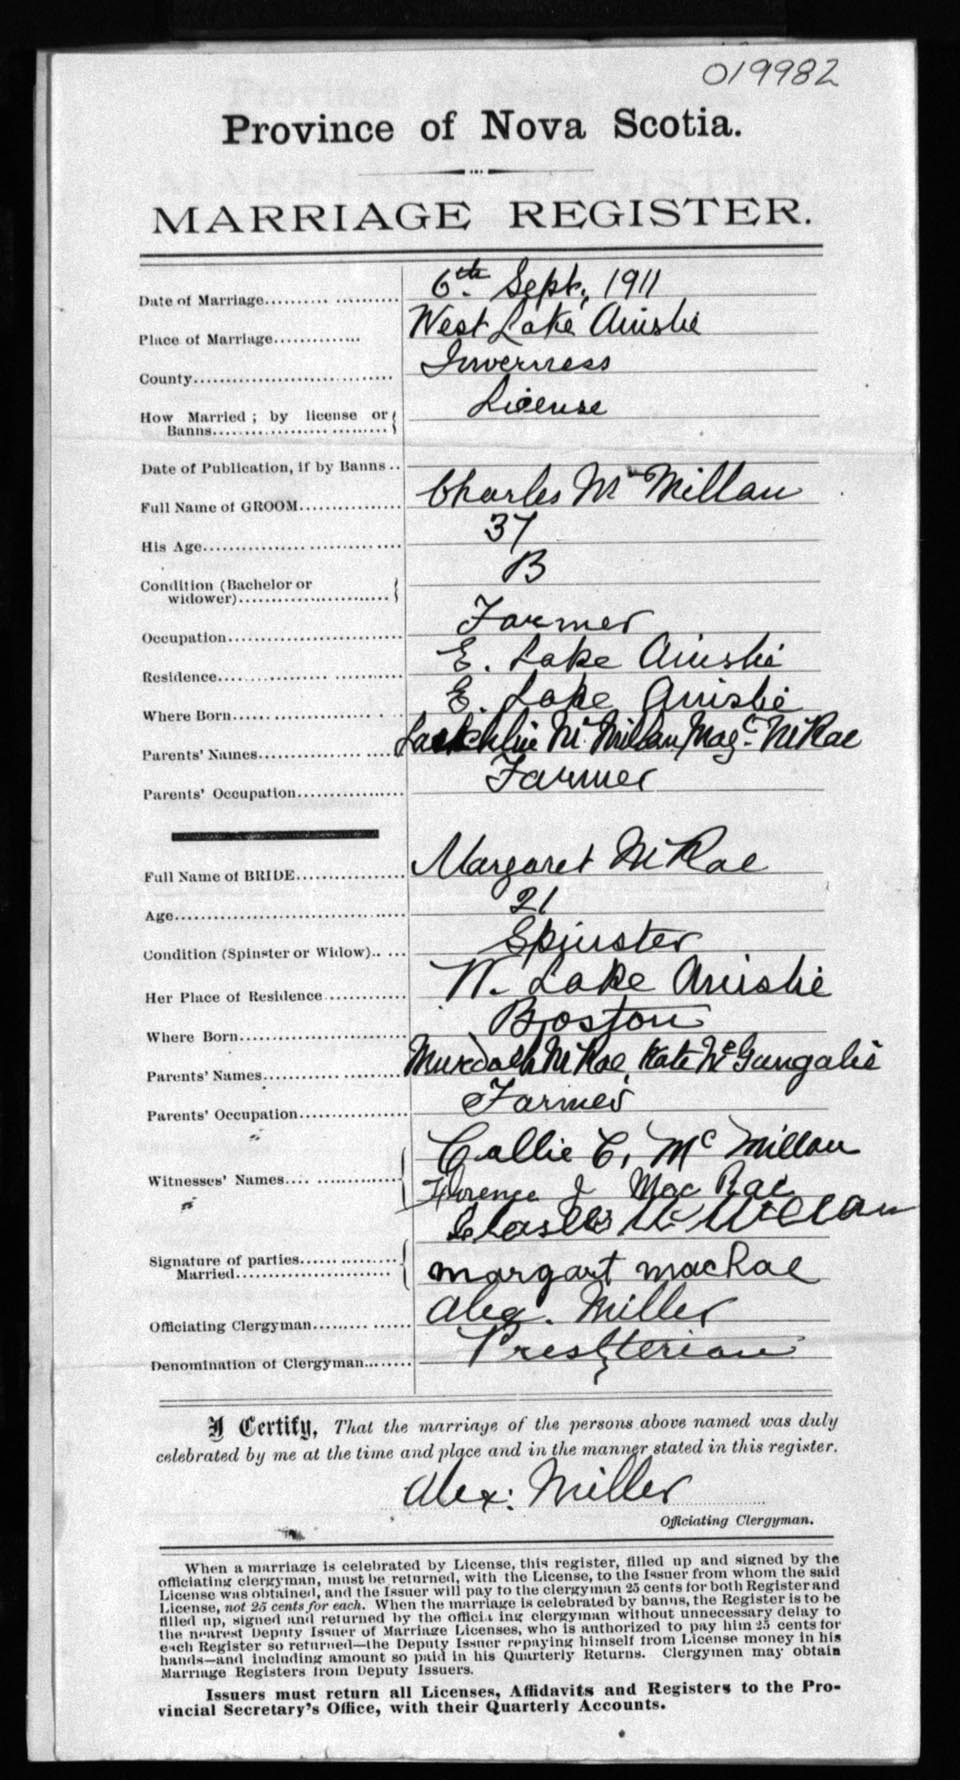 019982
Province of Nova Scotia.
MARRIAGE REGISTER.
Date of Marriage..................... 6th. Sept., 1911
Place of Marriage.............. West Lake Ainslie
County................................ Inverness
How Married ; by license or License
Banns..............................
Date of Publication, if by Banns ..
Full Name of GROOM................ Charles Mc Millan
His Age................................ 37
Condition (Bachelor or B
widower)..........................
Occupation............................ Farmer
Residence............................. E. Lake Ainslie
Where Born........................... E. Lake Ainslie
Parents' Names...................... Lauchlin Mc Millan, Magt. McRae
Parents' Occupation................. Farmer
Full Name of BRIDE................ Margaret McRae
Age..................................... 21
Condition (Spinster or Widow).. ... Spinster
Her Place of Residence............. W. Lake Ainslie
Where Born........................... Boston
Parents' Names...................... Murdoch McRae, Kate Mc
Parents' Occupation................. Farmer
Callie C. Mc Millan
Witnesses' Names.... ............. Florence J Mac Rae
Charles Mc Millan
Signature of parties................
Married......................... margart macRae
Officiating Clergyman............... Alex. Miller
Denomination of Clergyman........ Presbyterian
I Certify, That the marriage of the persons above named was duly
celebrated by me at the time and place and in the manner stated in this register.
Alex. Miller
Officiating Clergyman.
When a marriage is celebrated by License, this register, filled up and signed by the
officiating clergyman, must be returned, with the License, to the Issuer from whom the said
License was obtained, and the Issuer will pay to the clergyman 25 cents for both Register and
License, not 25 cents for each. When the marriage is celebrated by banns, the Register is to be
filled up, signed and returned by the officiating clergyman without unnecessary delay to
the nearest Deputy Issuer of Marriage Licenses, who is authorized to pay him 25 cents for
each Register so returned—the Deputy Issuer repaying himself from License money in his
hands—and including amount so paid in his Quarterly Returns. Clergymen may obtain
Marriage Registers from Deputy Issuers.
Issuers must return all Licenses, Affidavits and Registers to the Pro-
vincial Secretary's Office, with their Quarterly Accounts.